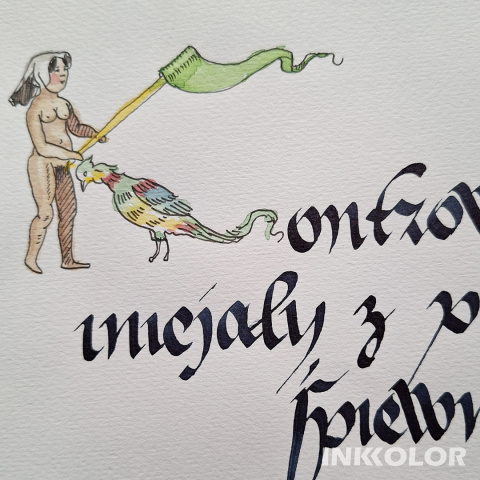 Kontrow
inicjały z p
śpiewn
INKKOLOR